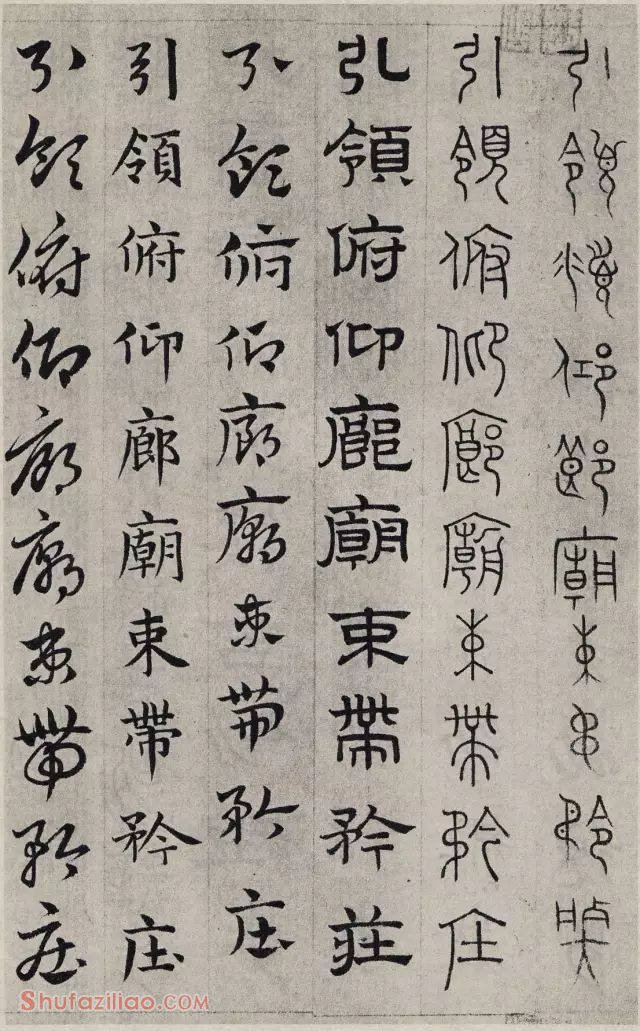 引領頫仰廊廟束帶矜莊
引領俯仰廊廟束帶矜庄
引領俯仰廊廟束帶矜莊
引領俯仰廊廟束帶矜庄
引領俯仰廊廟束帶矜庄
引領俯仰廊廟束帶矜庄
Shufaziliao.COM